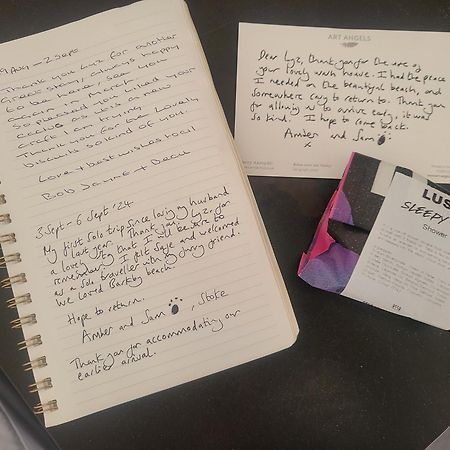 Aug – 2 Sept
Thank you Lyz for another
great stay, always happy
to be here, see you
again.
So pleased you liked your
cactus as it's a new
craft am trying
Thank you for the lovely
biscuits so kind of you.
Love & best wishes to all
Bob Jayne +
3 Sept – 6 Sept '24
My first solo trip since losing my husband
last year. Thank you, Lyz, for
a lovely stay that I will be sure to
remember. I felt safe and welcomed
as a solo traveller with my furry friend.
We loved Barkby beach.
Hope to return.
Amber and Sam , Stoke
Thank you for accommodating our
earlier arrival.
ART ANGELS
Dear Lyz, thank you for the use of
your lovely warm house. I had the peace
I needed on the beautiful beach, and
somewhere cosy to return to. Thank you
for allowing us to arrive early, it was
so kind. I hope to come back.
Amber and Sam
x
LUS
SLEEPY
Shower